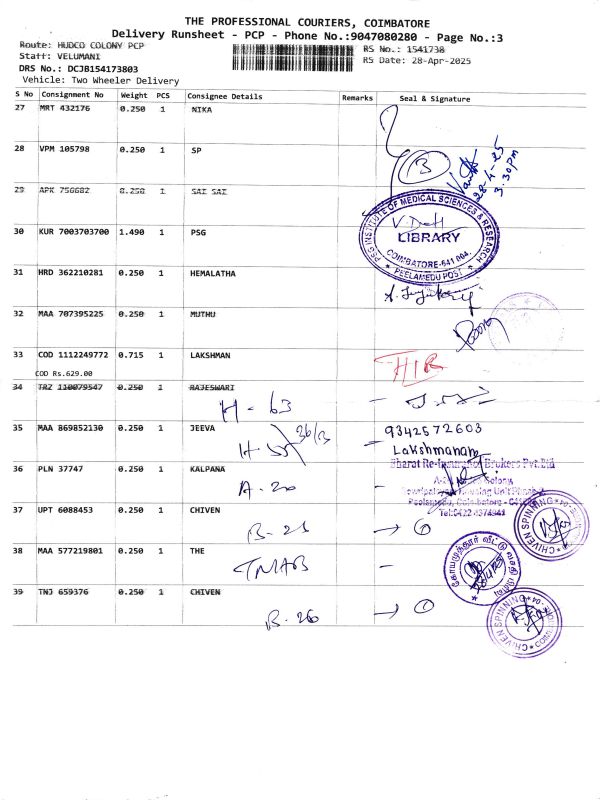 THE PROFESSIONAL COURIERS, COIMBATORE
Delivery Runsheet - PCP - Phone No.:9047080280 - Page No.:3
Route: HUDCO COLONY PCP
RS No.: 1541738
Staff: VELUMANI
RS Date: 28-Apr-2025
DRS No.: DCJB154173803
Vehicle: Two Wheeler Delivery
S No Consignment No Weight PCS Consignee Details Remarks Seal & Signature
27 MRT 432176 0.250 1 NIKA
28 VPM 105798 0.250 1 SP
3
28-4-25
3.30pm
29 APK 756682 0.250 1 SAI SAI
PSG INSTITUTE OF MEDICAL SCIENCES & RESEARCH
LIBRARY
COIMBATORE-641 004.
PEELAMEDU POST
30 KUR 7003703700 1.490 1 PSG
31 HRD 362210281 0.250 1 HEMALATHA
32 MAA 707395225 0.250 1 MUTHU
33 COD 1112249772 0.715 1 LAKSHMAN
COD Rs.629.00
34 TRZ 110079547 0.250 1 RAJESWARI
H - 63
35 MAA 869852130 0.250 1 JEEVA
36/3
9342572603
Lakshmanan
Bharat Re-Insurance Brokers Pvt.Ltd
36 PLN 37747 0.250 1 KALPANA
A-20 -
Peelamedu, Coimbatore
Tel:0422
37 UPT 6088453 0.250 1 CHIVEN
CHIVEN SPINNING
38 MAA 577219801 0.250 1 THE
TNHB -
கோயமுத்தூர் வீட்டு வசதி பிரிவு
39 TNJ 659376 0.250 1 CHIVEN
B-26
CHIVEN SPINNING